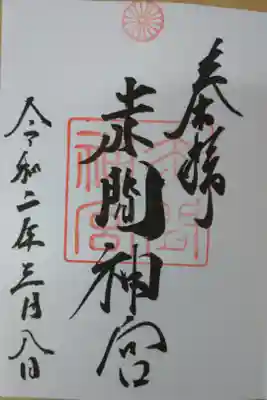 奉拝
赤間神宮
令和二年三月八日